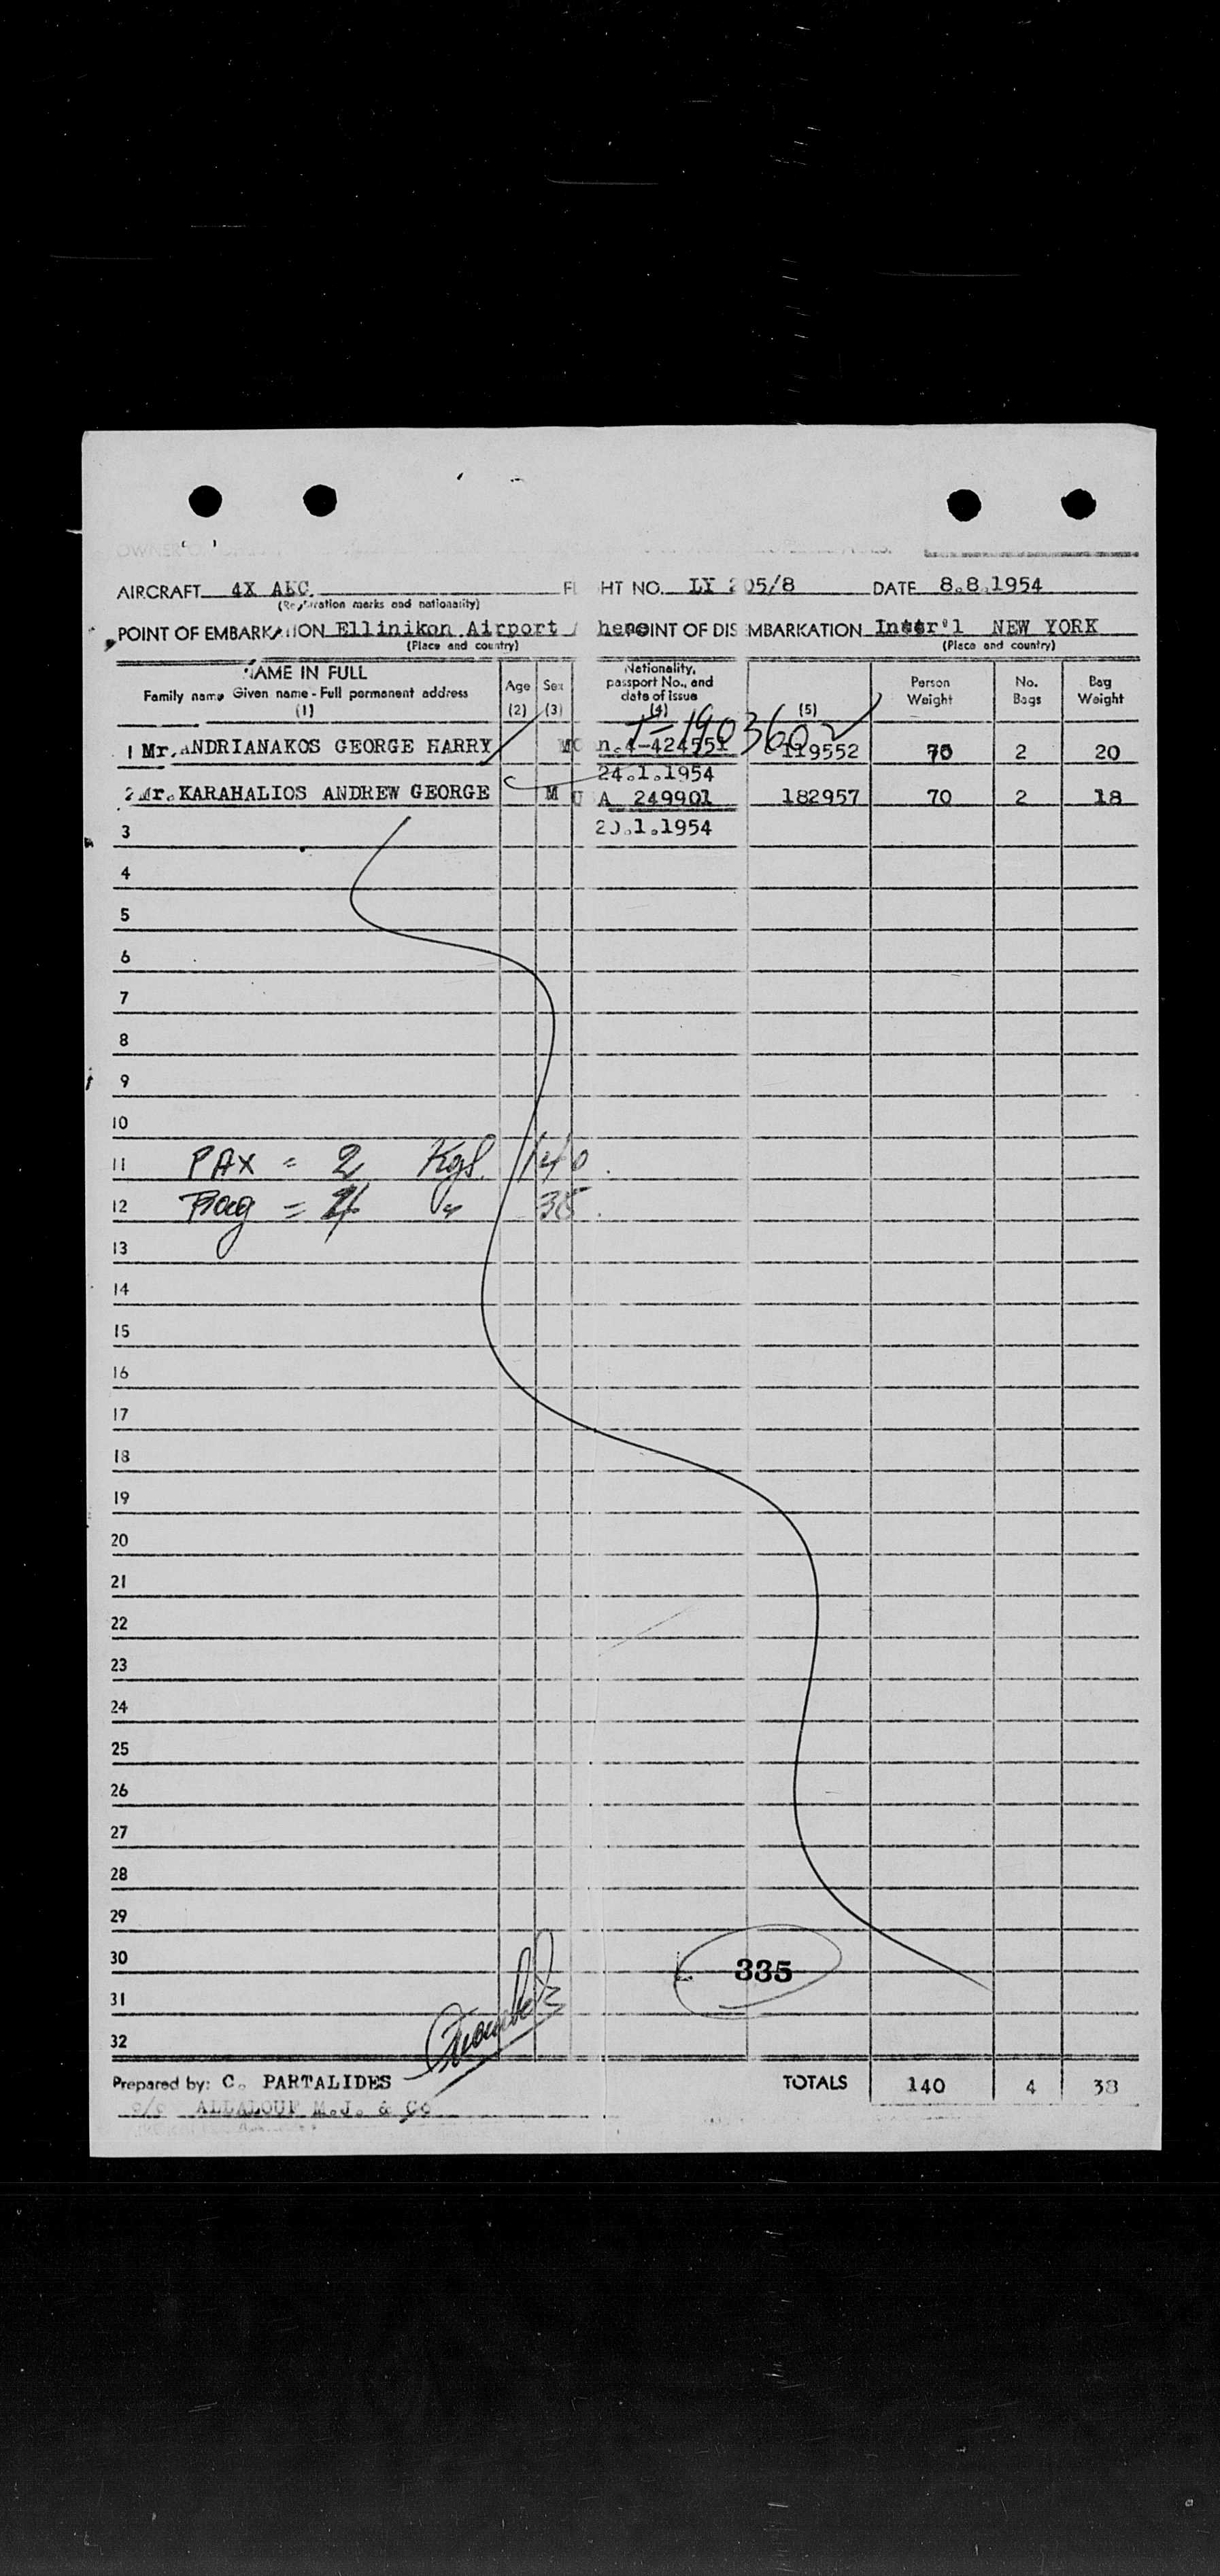 AIRCRAFT 4X AKC. FLIGHT NO. LY 205/8 DATE 8.8.1954
(Registration marks and nationality)
POINT OF EMBARKATION Ellinikon Airport POINT OF DISEMBARKATION Inter'l NEW YORK
(Place and country) (Place and country)
NAME IN FULL
Family name Given name - Full permanent address
(1)
Age
(2)
Sex
(3)
Nationality,
passport No., and
date of issue
(4)
(5)
Person
Weight
No.
Bags
Bag
Weight
T-1903602
1 Mr. ANDRIANAKOS GEORGE HARRY M 4-424551 119552 70 2 20
24.1.1954
2 Mr. KARAHALIOS ANDREW GEORGE M U A 249901 182957 70 2 18
3 20.1.1954
4
5
6
7
8
9
10
11 PAX = 2 Kgs. 140.
12 Bag = 4 " 38.
13
14
15
16
17
18
19
20
21
22
23
24
25
26
27
28
29
30 335
31
32
Prepared by: C. PARTALIDES TOTALS 140 4 38
c/o ALLALOUF M.J. & Co